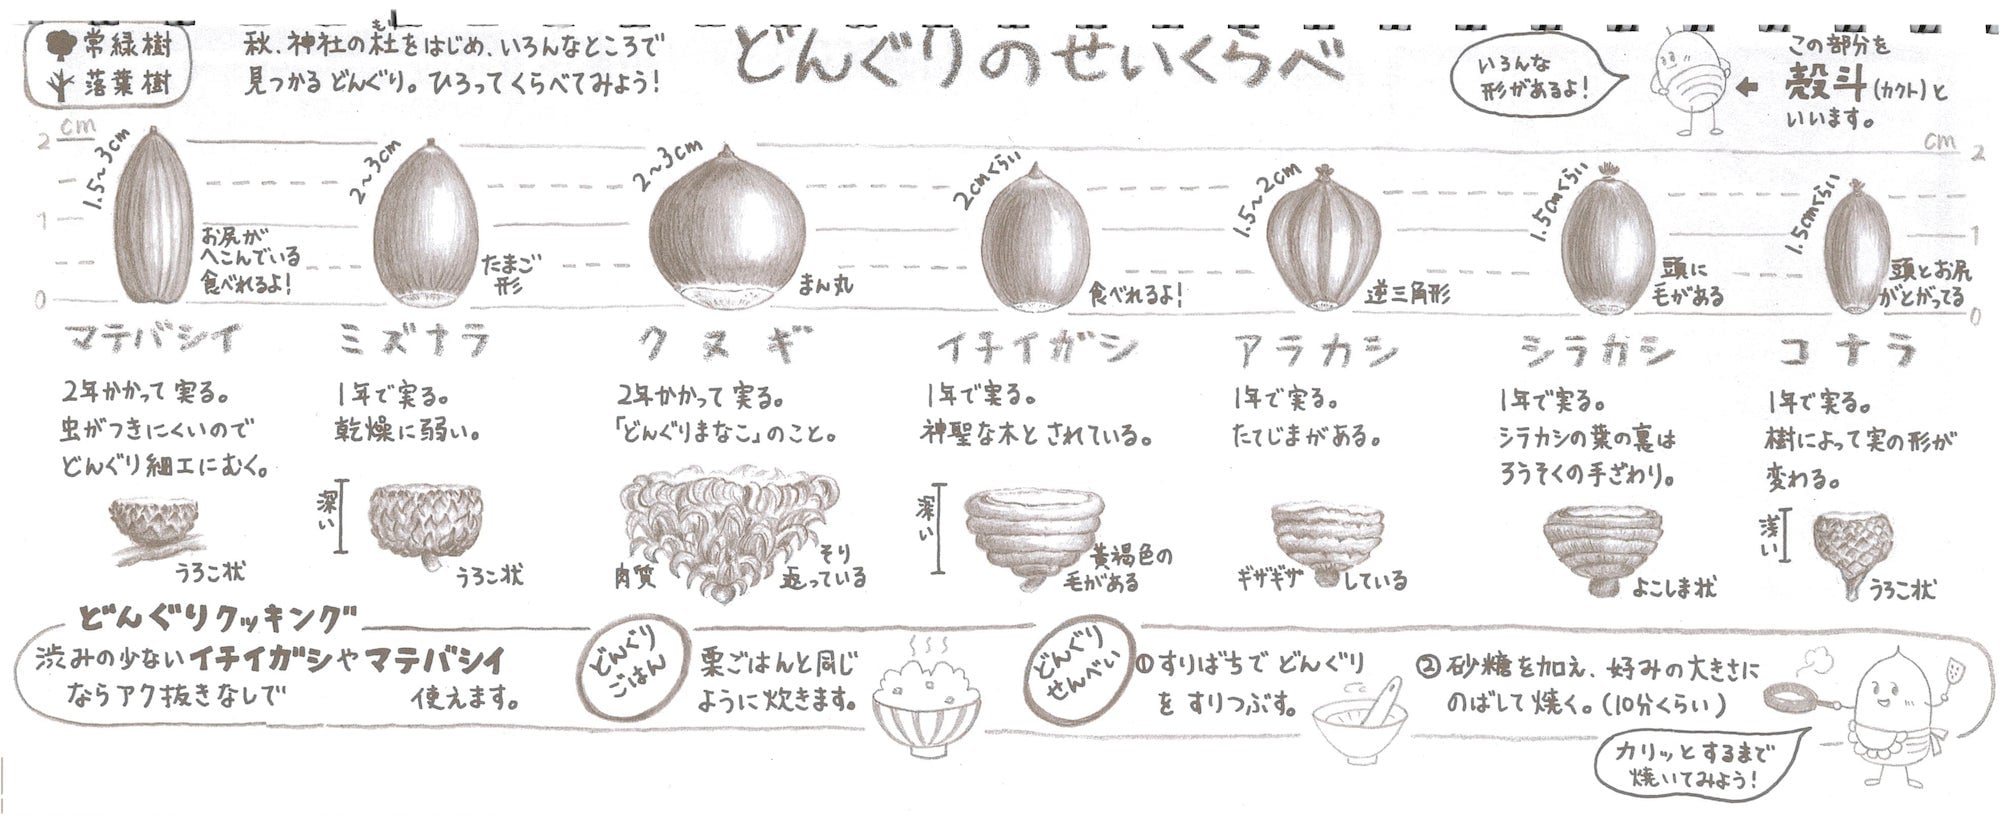 常緑樹
落葉樹
秋、神社の杜をはじめ、いろんなところで
もり
見つかるどんぐり。ひろってくらべてみよう!
どんぐりのせいくらべ
いろんな
形があるよ!
この部分を
殻斗(カクト)と
いいます。
cm
2
1
0
cm
2
1
0
1.5~3cm
お尻が
へこんでいる
食べれるよ!
2~3cm
たまご
形
2~3cm
まん丸
2cmくらい
食べれるよ!
1.5~2cm
逆三角形
1.5cmくらい
頭に
毛がある
1.5cmくらい
頭とお尻
がとがってる
マテバシイ
2年かかって実る。
虫がつきにくいので
どんぐり細工にむく。
うろこ状
ミズナラ
1年で実る。
乾燥に弱い。
深い
うろこ状
クヌギ
2年かかって実る。
「どんぐりまなこ」のこと。
肉質
そり
返っている
イチイガシ
1年で実る。
神聖な木とされている。
深い
黄褐色の
毛がある
アラカシ
1年で実る。
たてじまがある。
ギザギザしている
シラカシ
1年で実る。
シラカシの葉の裏は
ろうそくの手ざわり。
よこしま状
コナラ
1年で実る。
樹によって実の形が
変わる。
浅い
うろこ状
どんぐりクッキング
渋みの少ないイチイガシやマテバシイ
ならアク抜きなしで 使えます。
どんぐり
ごはん
栗ごはんと同じ
ように炊きます。
どんぐり
せんべい
①すりばちでどんぐり
をすりつぶす。
②砂糖を加え、好みの大きさに
のばして焼く。(10分くらい)
カリッとするまで
焼いてみよう!